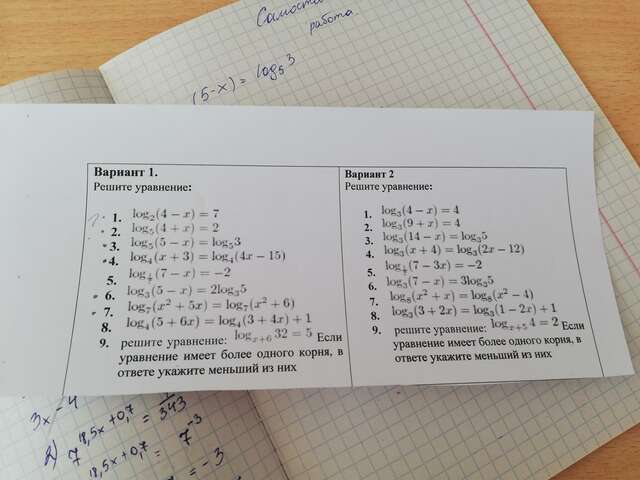 Самосто
работа
(5-x) = log₅3
Вариант 1.
Решите уравнение:
1. log₂(4 − x) = 7
2. log₅(4 + x) = 2
3. log₅(5 − x) = log₅3
4. log₄(x + 3) = log₄(4x − 15)
5. (7 − x) = −2
6. log₃(5 − x) = 2log₃5
7. log₇(x² + 5x) = log₇(x² + 6)
8. log₄(5 + 6x) = log₄(3 + 4x) + 1
9. решите уравнение: logₓ₊₆ 32 = 5 Если
уравнение имеет более одного корня, в
ответе укажите меньший из них
Вариант 2
Решите уравнение:
1. log₃(4 − x) = 4
2. log₃(9 + x) = 4
3. log₃(14 − x) = log₃5
4. log₃(x + 4) = log₃(2x − 12)
5. (7 − 3x) = −2
6. log₃(7 − x) = 3log₃5
7. log₈(x² + x) = log₈(x² − 4)
8. log₃(3 + 2x) = log₃(1 − 2x) + 1
9. решите уравнение: logₓ₊₅ 4 = 2 Если
уравнение имеет более одного корня, в
ответе укажите меньший из них
3x − 4
2) 7 18,5x+0,7 = 1/343
7 18,5x+0,7 = 7⁻³
18,5x+0,7 = −3